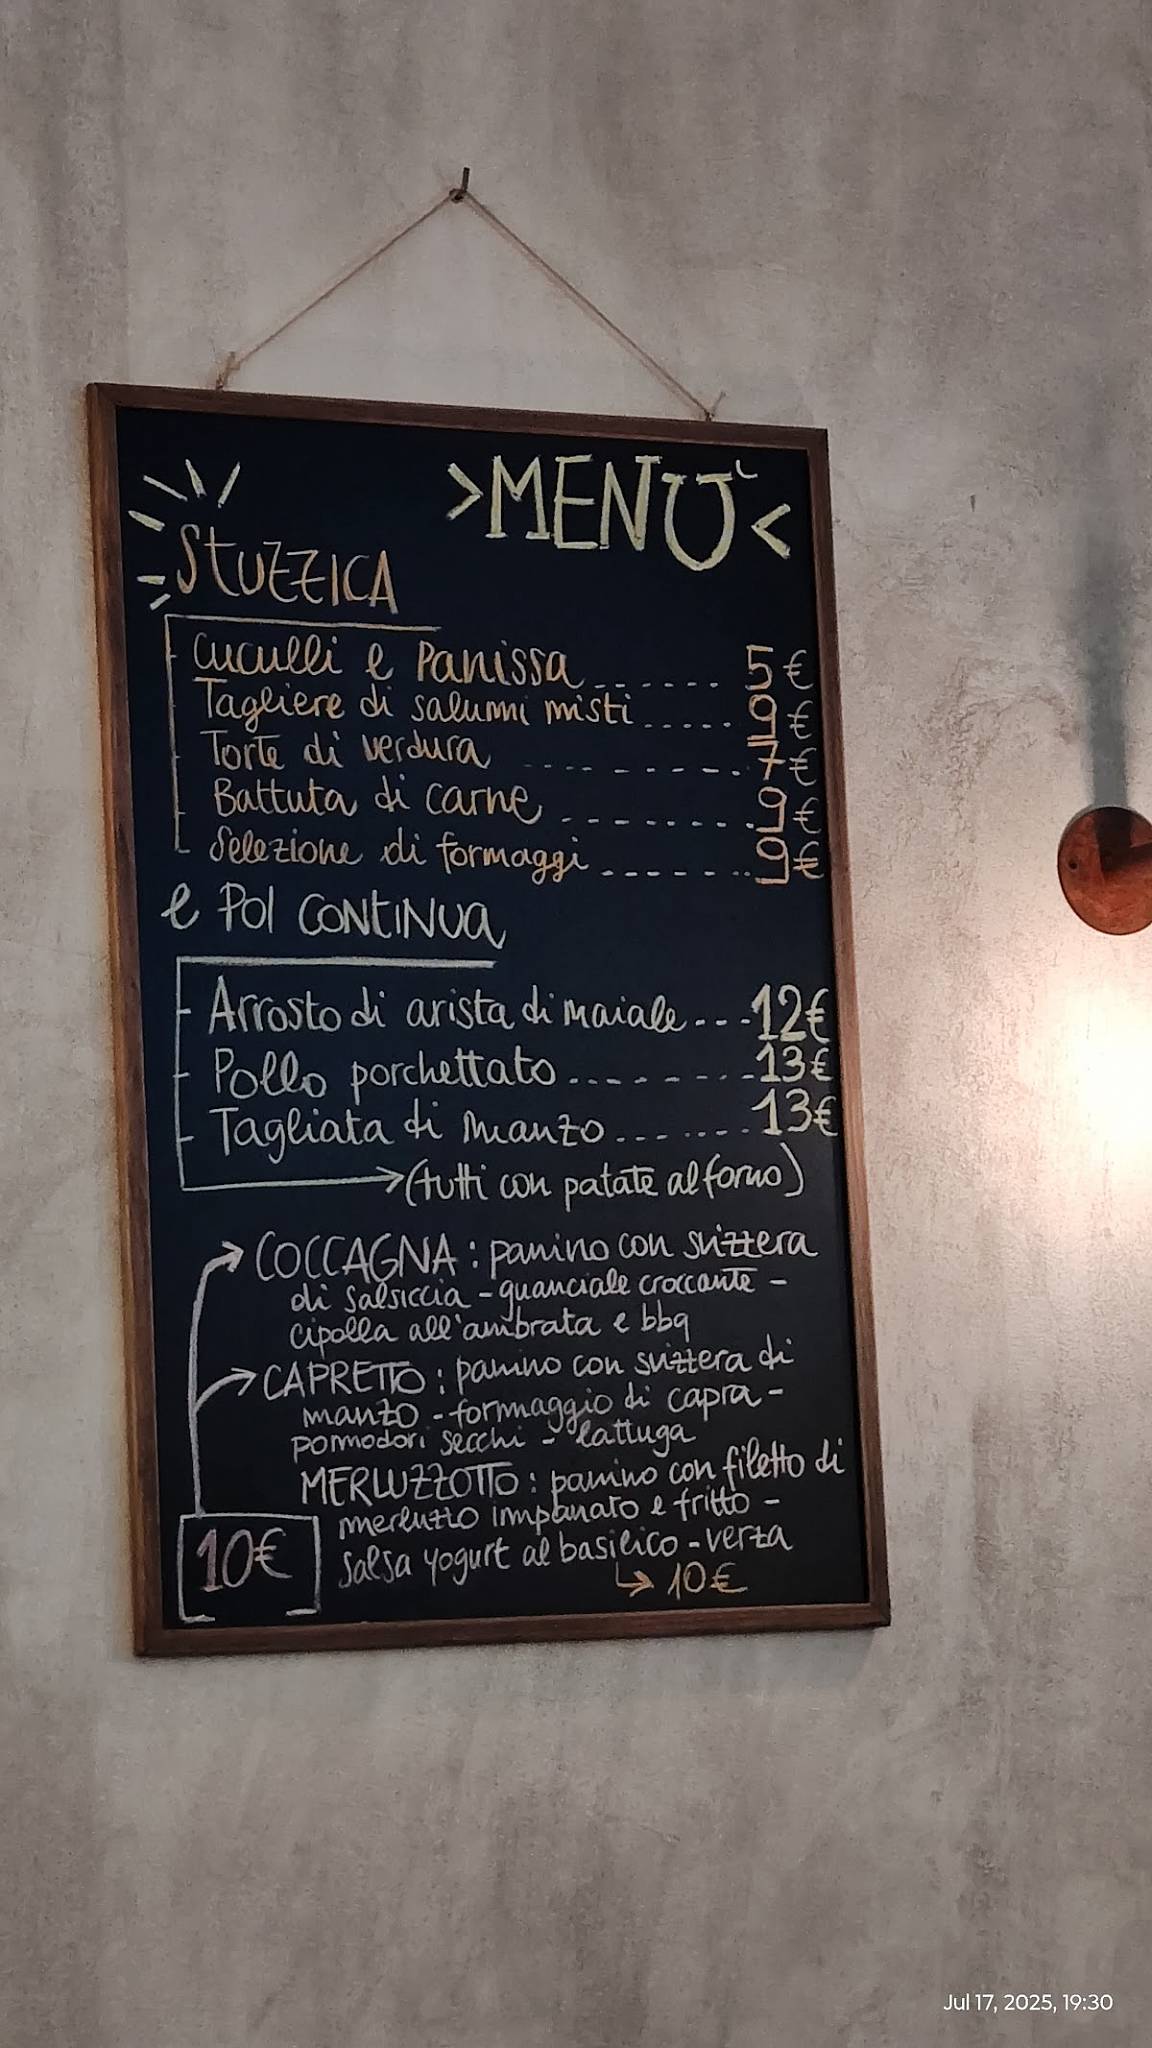 >MENU'<
STUZZICA
Cuculli e Panissa ...... 5€
Tagliere di salumi misti ..... 9€
Torte di verdura ......... 7€
Battuta di carne ......... 9€
Selezione di formaggi ....... 9€
e POI CONTINUA
Arrosto di arista di maiale ... 12€
Pollo porchettato ........ 13€
Tagliata di manzo ....... 13€
→ (tutti con patate al forno)
→ COCCAGNA : panino con svizzera
di salsiccia - guanciale croccante -
cipolla all'ambrata e bbq
→ CAPRETTO : panino con svizzera di
manzo - formaggio di capra -
pomodori secchi - lattuga
MERLUZZOTTO : panino con filetto di
merluzzo impanato e fritto -
salsa yogurt al basilico - verza
10€
↳ 10€
Jul 17, 2025, 19:30